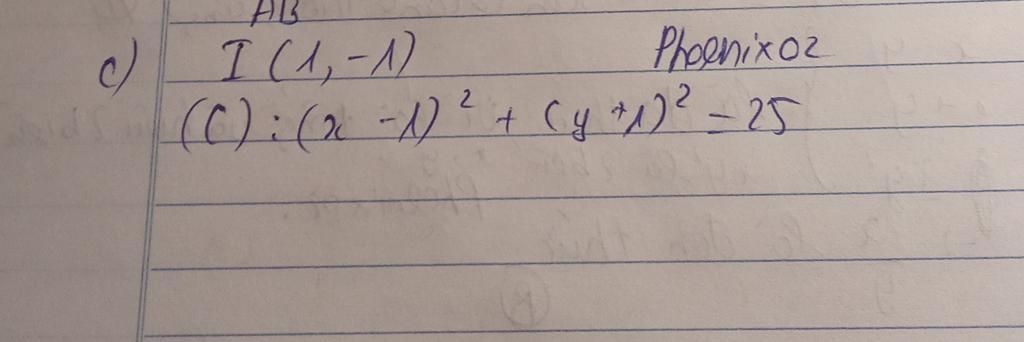 AB
c) I (1, -1) Phoenix02
(C) : (x - 1)² + (y + 1)² = 25